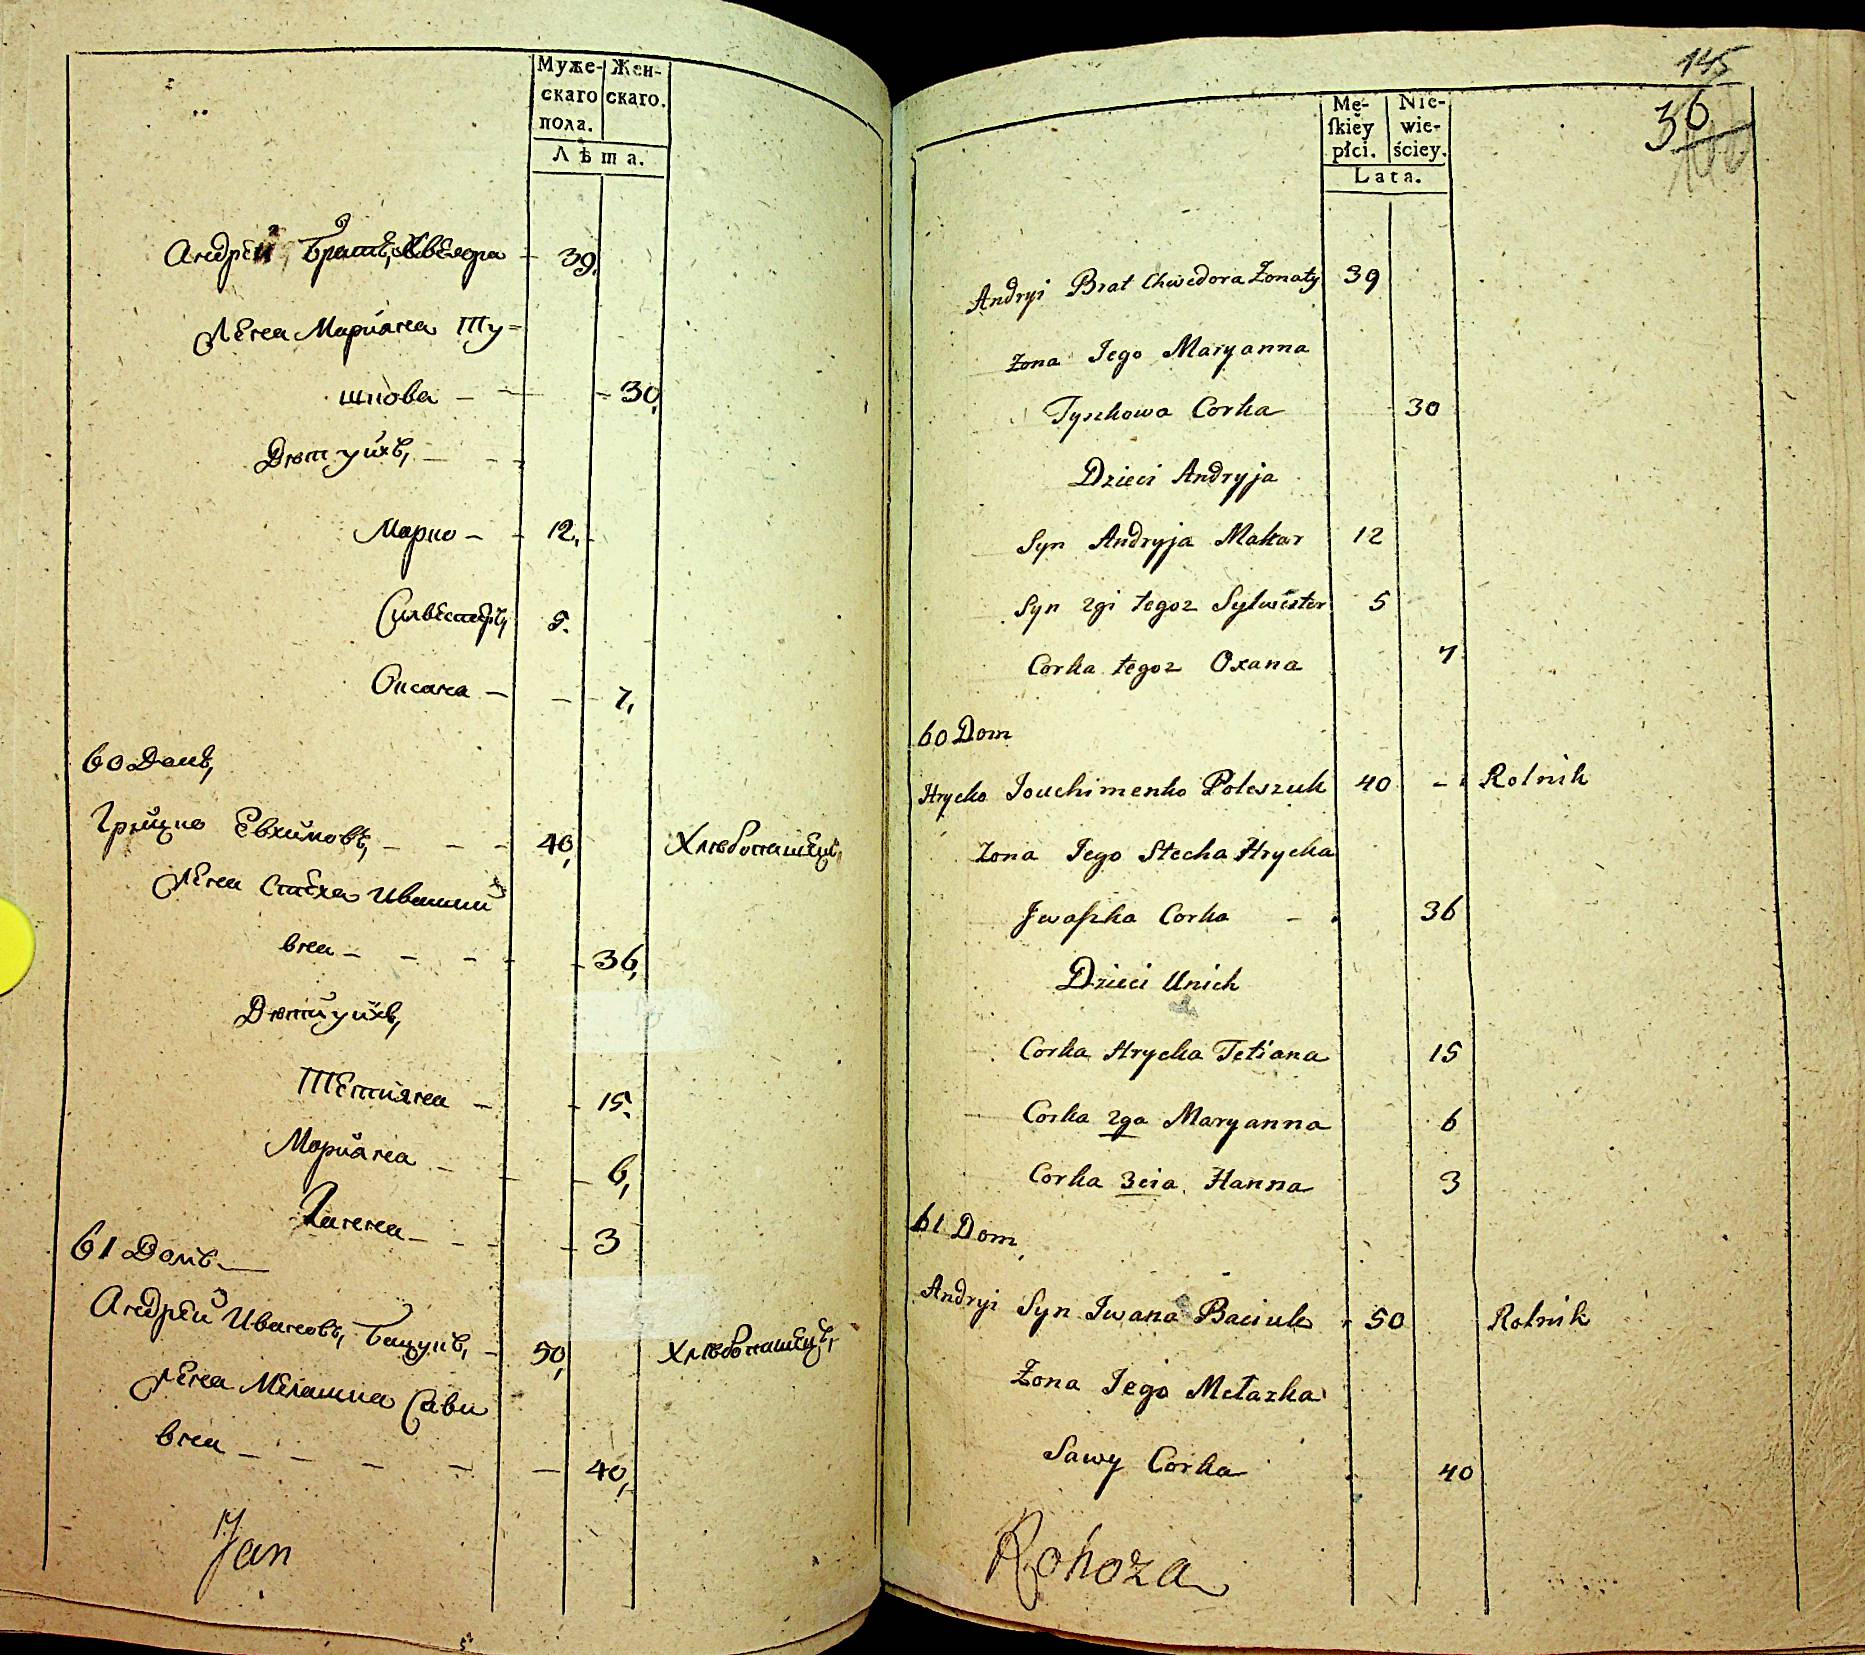 Муже-
скаго
пола.
Жен-
скаго.
Лѣта.
Андрей Братъ Хведора - 39.
Жена Мариана Ту-
шкова - - - 30,
Дѣти ихъ, - -
Марко - - 12,-
Силвестеръ, 5.
Оксана - - 7,
60 Домъ,
Грицко Евхимовъ, - - - 40, Хлѣбопашецъ,
Жена Стеха Ивашки
вна - - - - - 36,
Дѣти ихъ,
Тетиана - - 15.
Мариана - - - 6,
Ганна - - - - 3
61 Домъ
Андрей Ивановъ, Бацукъ, - 50, Хлѣбопашецъ,
Жена Мелашка Сави
вна - - - - - 40,
Jan
145
36
Mę-
ſkiéy
płci.
Nie-
wie-
ściey.
Lata.
Andryi Brat Chwedora Żonaty 39
Żona Jego Maryanna
Tyszkowa Corka 30
Dzieci Andryja
Syn Andryja Makar 12
Syn 2gi tegoz Sylwester 5
Corka tegoz Oxana 7
60 Dom
Hrycko Jouchimenko Poleszuk 40 - Rolnik
Zona Jego Stecha Hrycka
Jwaſzka Corka - 36
Dzieci Unich
Corka Hrycka Tetiana 15
Corka 2ga Maryanna 6
Corka 3cia Hanna 3
61 Dom
Andryi Syn Iwana Baciuk 50 Rolnik
Żona Jego Mełazka
Sawy Corka 40
Rohoza